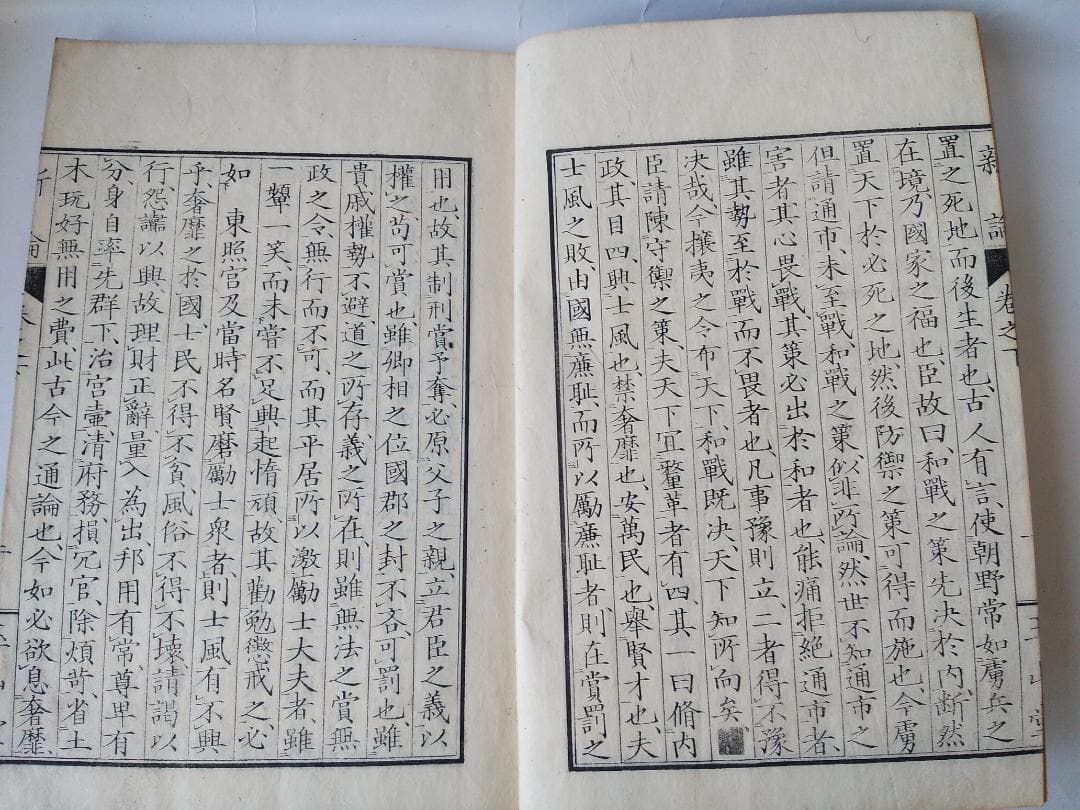 新論 卷之下
置之死地而後生者也、古人有言、使朝野常如虜兵之
在境、乃國家之福也、臣故曰、和戰之策先决於内、斷然
置天下於必死之地、然後防禦之策可得而施也、今虜
但請通市、未至戰、和戰之策、似非所論、然世不知通市之
害者、其心畏戰、其策必出於和者也、能痛拒絶通市者、
雖其勢至於戰、而不畏者也、凡事豫則立、二者得不豫
决哉、今攘夷之令布天下、和戰既决、天下知所向矣、
臣請陳守禦之策、夫天下宜釐革者有四、其一曰脩内
政、其目四、興士風也、禁奢靡也、安萬民也、舉賢才也、夫
士風之敗、由國無廉耻、而所以勵廉耻者、則在賞罰之
用也、故其制刑賞予奪、必原父子之親、立君臣之義、以
權之、苟可賞也、雖卿相之位、國郡之封、不吝、可罰也、雖
貴戚權勢不避、道之所存、義之所在、則雖無法之賞、無
政之令、無行而不可、而其平居所以激勵士大夫者、雖
一顰一笑、而未嘗不足興起惰頑、故其勸勉懲戒之、必
如 東照宮及當時名賢磨勵士衆者、則士風有不興
乎、奢靡之於國、士民不得不貧、風俗不得不壞、請謁以
行、怨讟以興、故理財正辭、量入為出、邦用有常、尊卑有
分、身自率先群下、治宮壼、清府務、損冗官、除煩苛、省土
木玩好無用之費、此古今之通論也、今如必欲息奢靡、
新論